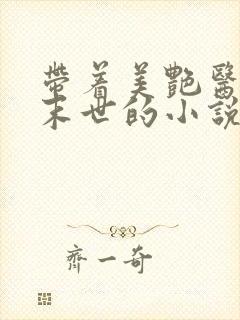 帶着美艷醫
末世的小説
齊一奇